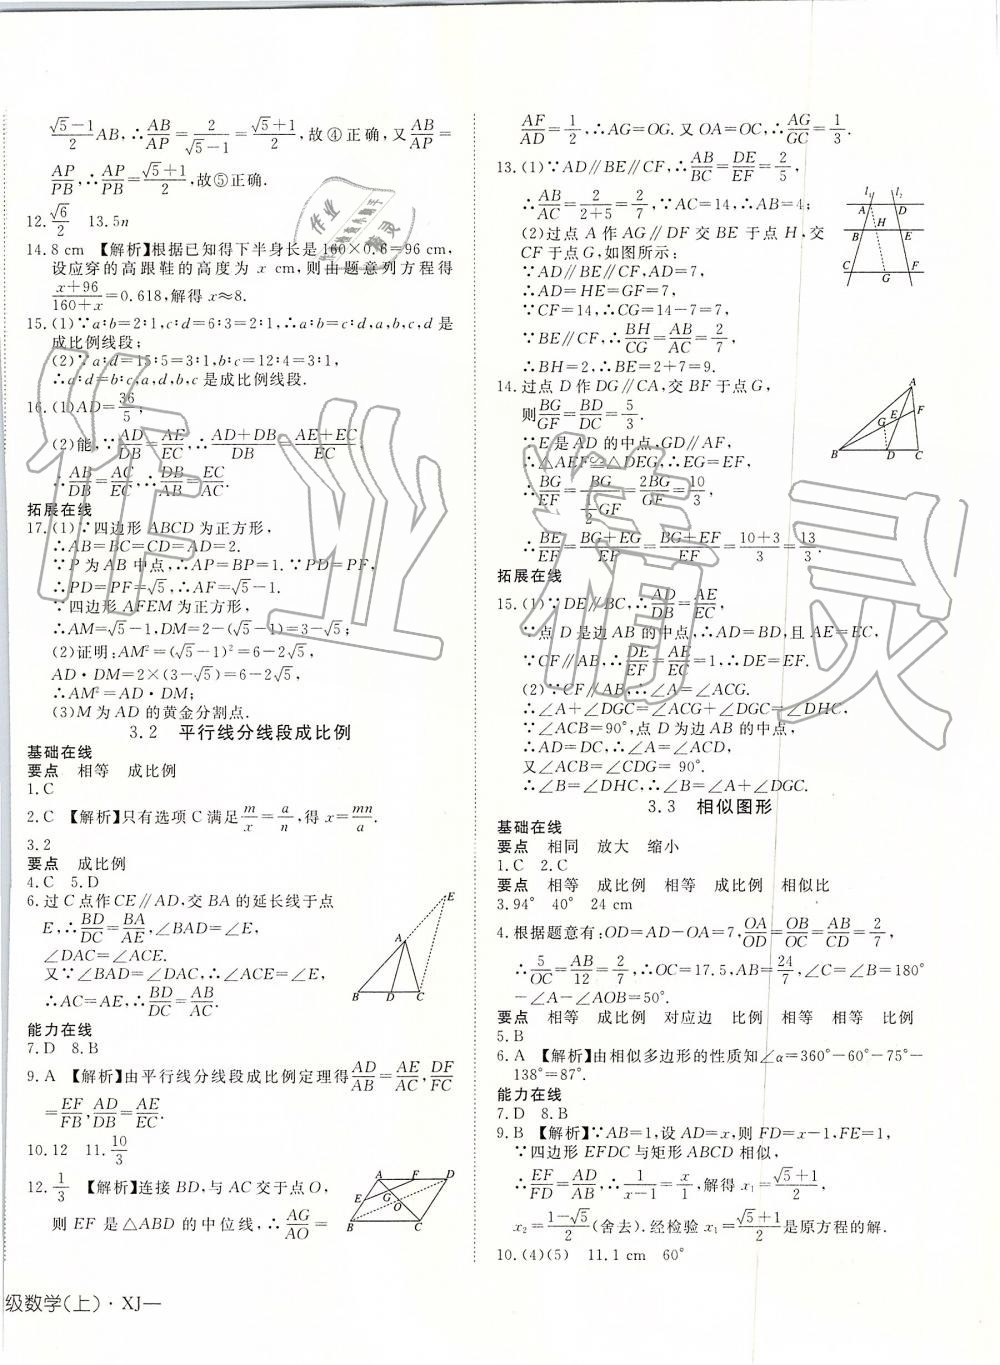 (√5-1)/2 AB,∴AB/AP=2/(√5-1)=(√5+1)/2,故④正确,又AB/AP=
AP/PB,∴AP/PB=(√5+1)/2,故⑤正确.
12.√6/2 13.5n
14.8 cm 【解析】根据已知得下半身长是160×0.6=96 cm,
设应穿的高跟鞋的高度为 x cm,则由题意列方程得
(x+96)/(160+x)=0.618,解得 x≈8.
15.(1)∵a∶b=2∶1,c∶d=6∶3=2∶1,∴a∶b=c∶d,a,b,c,d 是
成比例线段;
(2)∵a∶d=15∶5=3∶1,b∶c=12∶4=3∶1,
∴a∶d=b∶c,a,d,b,c 是成比例线段.
16.(1)AD=36/5,
(2)能,∵AD/DB=AE/EC,∴(AD+DB)/DB=(AE+EC)/EC.
∴AB/DB=AC/EC,∴DB/AB=EC/AC.
拓展在线
17.(1)∵四边形 ABCD 为正方形,
∴AB=BC=CD=AD=2.
∵P 为 AB 中点,∴AP=BP=1.∵PD=PF,
∴PD=PF=√5,∴AF=√5-1.
∵四边形 AFEM 为正方形,
∴AM=√5-1,DM=2-(√5-1)=3-√5;
(2)证明:AM²=(√5-1)²=6-2√5,
AD·DM=2×(3-√5)=6-2√5,
∴AM²=AD·DM;
(3)M 为 AD 的黄金分割点.
3.2 平行线分线段成比例
基础在线
要点 相等 成比例
1.C
2.C 【解析】只有选项 C 满足m/x=a/n,得 x=mn/a.
3.2
要点 成比例
4.C 5.D
6.过 C 点作 CE∥AD,交 BA 的延长线于点
E,∴BD/DC=BA/AE,∠BAD=∠E,
∠DAC=∠ACE.
又∵∠BAD=∠DAC,∴∠ACE=∠E,
∴AC=AE,∴BD/DC=AB/AC.
E
A
B D C
能力在线
7.D 8.B
9.A 【解析】由平行线分线段成比例定理得AD/AB=AE/AC,DF/FC
=EF/FB,AD/DB=AE/EC.
10.12 11.10/3
12.1/3 【解析】连接 BD,与 AC 交于点 O,
则 EF 是△ABD 的中位线,∴AG/AO=
A F D
E G O
B C
级数学(上)·XJ—
AF/AD=1/2,∴AG=OG.又 OA=OC,∴AG/GC=1/3.
13.(1)∵AD∥BE∥CF,∴AB/BC=DE/EF=2/5,
∴AB/AC=2/(2+5)=2/7,∵AC=14,∴AB=4;
(2)过点 A 作 AG∥DF 交 BE 于点 H,交
CF 于点 G,如图所示:
∵AD∥BE∥CF,AD=7,
∴AD=HE=GF=7,
∵CF=14,∴CG=14-7=7,
∵BE∥CF,∴BH/CG=AB/AC=2/7,
∴BH=2,∴BE=2+7=9.
l₁ l₂
A D
H
B E
C G F
14.过点 D 作 DG∥CA,交 BF 于点 G,
则BG/GF=BD/DC=5/3.
∵E 是 AD 的中点,GD∥AF,
∴△AEF≌△DEG,∴EG=EF,
∴BG/EF=BG/(1/2 GF)=2BG/GF=10/3,
∴BE/EF=(BG+EG)/EF=(BG+EF)/EF=(10+3)/3=13/3.
A
F
G E
B D C
拓展在线
15.(1)∵DE∥BC,∴AD/DB=AE/EC,
∵点 D 是边 AB 的中点,∴AD=BD,且 AE=EC,
∵CF∥AB,∴DE/EF=AE/EC=1,∴DE=EF.
(2)∵CF∥AB,∴∠A=∠ACG.
∴∠A+∠DGC=∠ACG+∠DGC=∠DHC,
∵∠ACB=90°,点 D 为边 AB 的中点,
又∠ACB=∠CDG= 90°.
∴∠B=∠DHC,∴∠B=∠A+∠DGC.
3.3 相似图形
基础在线
要点 相同 放大 缩小
1.C 2.C
要点 相等 成比例 相等 成比例 相似比
3.94° 40° 24 cm
4.根据题意有:OD=AD-OA=7,OA/OD=OB/OC=AB/CD=2/7,
∴5/OC=AB/12=2/7,∴OC=17.5,AB=24/7,∠B=∠C=180°
-∠A-∠AOB=50°.
要点 相等 成比例 对应边 比例 相等 相等 比例
5.B
6.A 【解析】由相似多边形的性质知∠α=360°-60°-75°-
138°=87°.
能力在线
7.D 8.B
9.B 【解析】∵AB=1,设 AD=x,则 FD=x-1,FE=1,
∵四边形 EFDC 与矩形 ABCD 相似,
∴EF/FD=AD/AB,∴1/(x-1)=x/1,解得 x₁=(√5+1)/2,
x₂=(1-√5)/2(舍去).经检验 x₁=(√5+1)/2是原方程的解.
10.(4)(5) 11.1 cm 60°
作业精灵